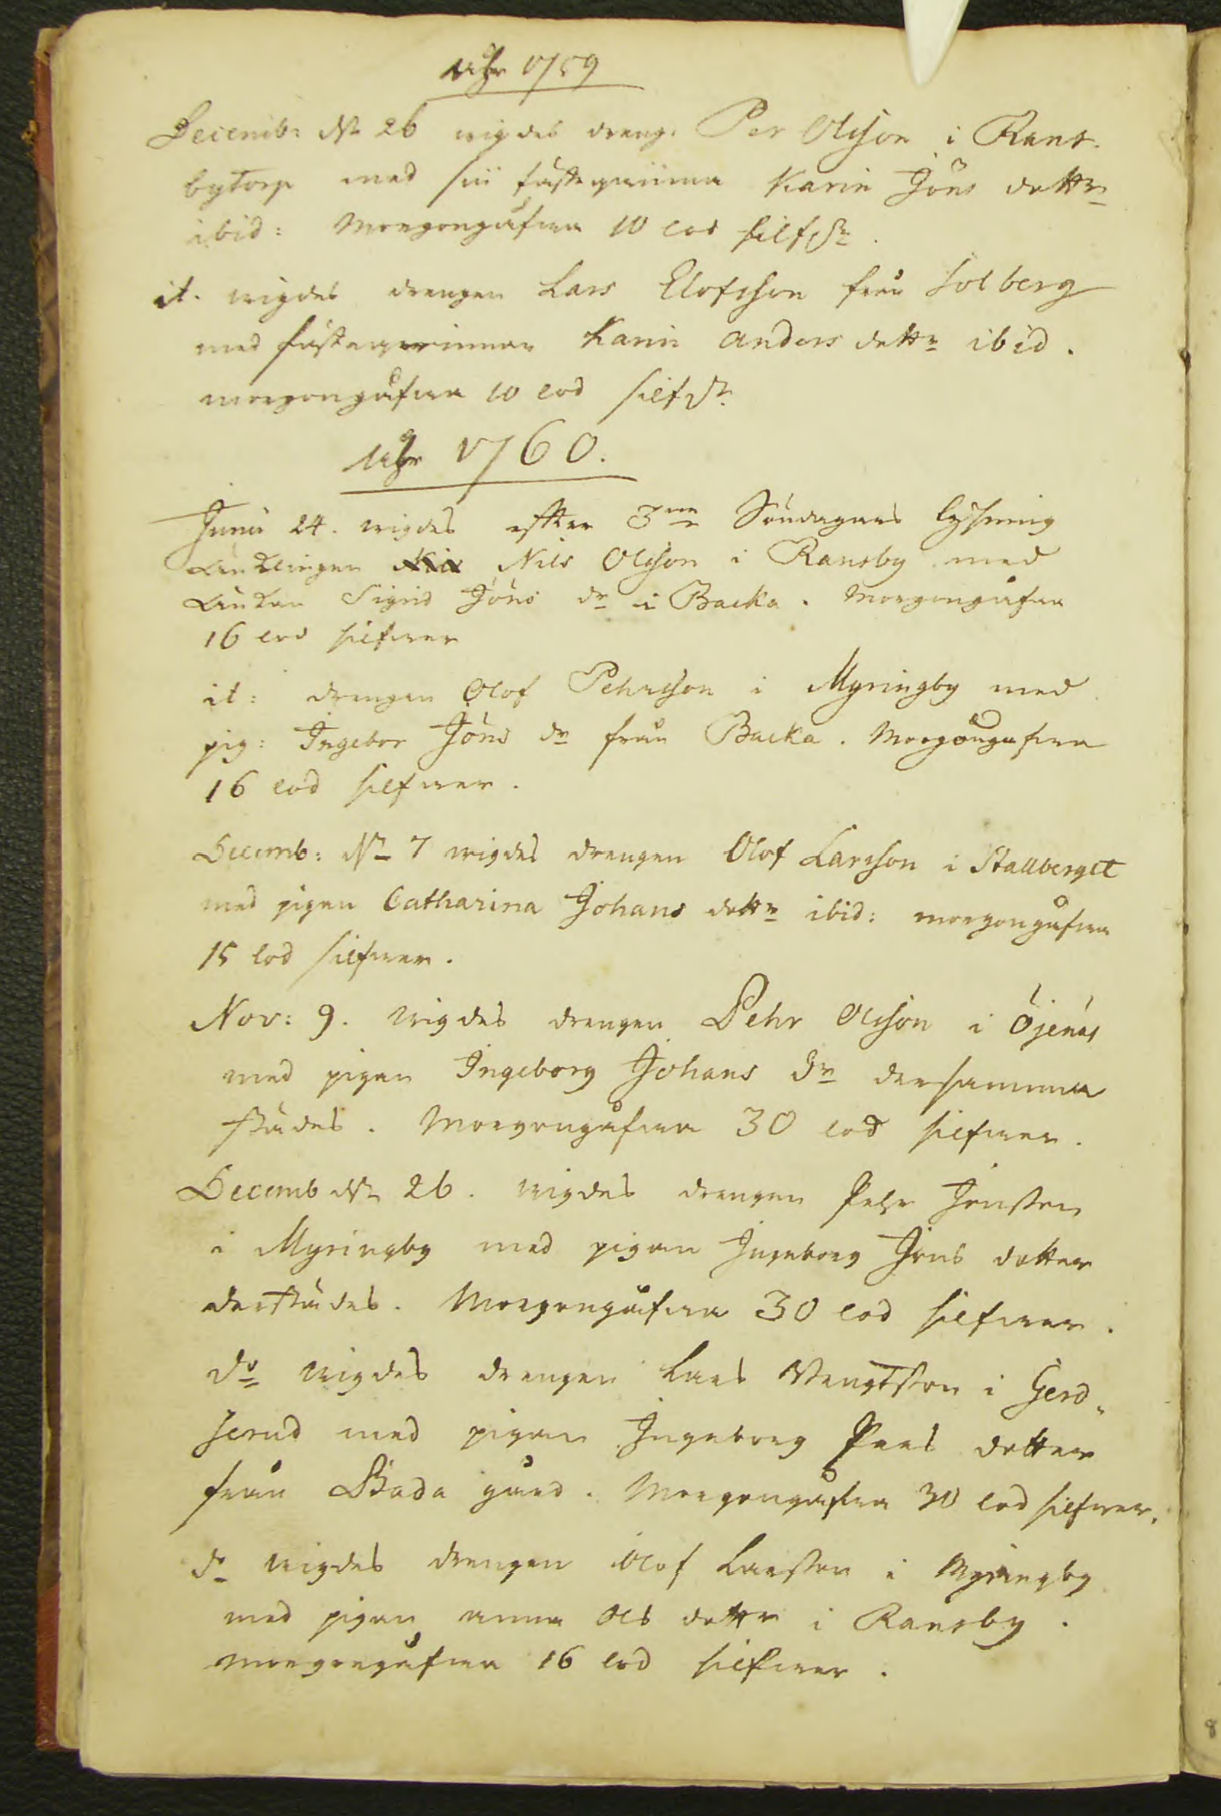 Åhr 1759
Decemb: d. 26 wigdes dreng. Per Olsson i Rans-
bytorp med sin fästeqvinna Karin Jöns dottr
ibid: Morgongåfwa 10 lod silfvr.
it. wigdes drengen Lars Elofsson från Solberg
med fästeqwinnan Karin Anders dottr ibid.
morgongåfwa 10 lod silfvr
Åhr 1760.
Junii 24. wigdes efter 3ne Söndagars lysning
Enklingen Nils Olsson i Ransby med
Enkan Sigrid Jöns dr i Backa. Morgongåfwa
16 lod silfwer
it: drengen Olof Pehrsson i Myringby med
pig: Ingebor Jöns dr från Backa. Morgongåfwa
16 lod silfwer.
Decemb: d. 7 wigdes drengen Olof Larsson i Stallberget
med pigan Catharina Johans dottr ibid: morgongåfwa
15 lod silfwer.
Nov: 9. wigdes drengen Pehr Olsson i Öjenäs
med pigan Ingeborg Johans dr dersamma
städes. Morgongåfwa 30 lod silfwer.
Decemb d. 26. wigdes drengen Pehr Jönsson
i Myringby med pigan Ingeborg Jöns dotter
derstädes. Morgongåfwa 30 lod silfwer.
do wigdes drengen Lars Bengtsson i Gerd„
serud med pigan Ingeborg Pers dotter
från Bada gård. Morgongåfwa 30 lod silfwer.
do wigdes drengen Olof Larsson i Myringby
med pigan Anna Ols dottr i Ransby.
Morgongåfwa 16 lod silfwer.
8